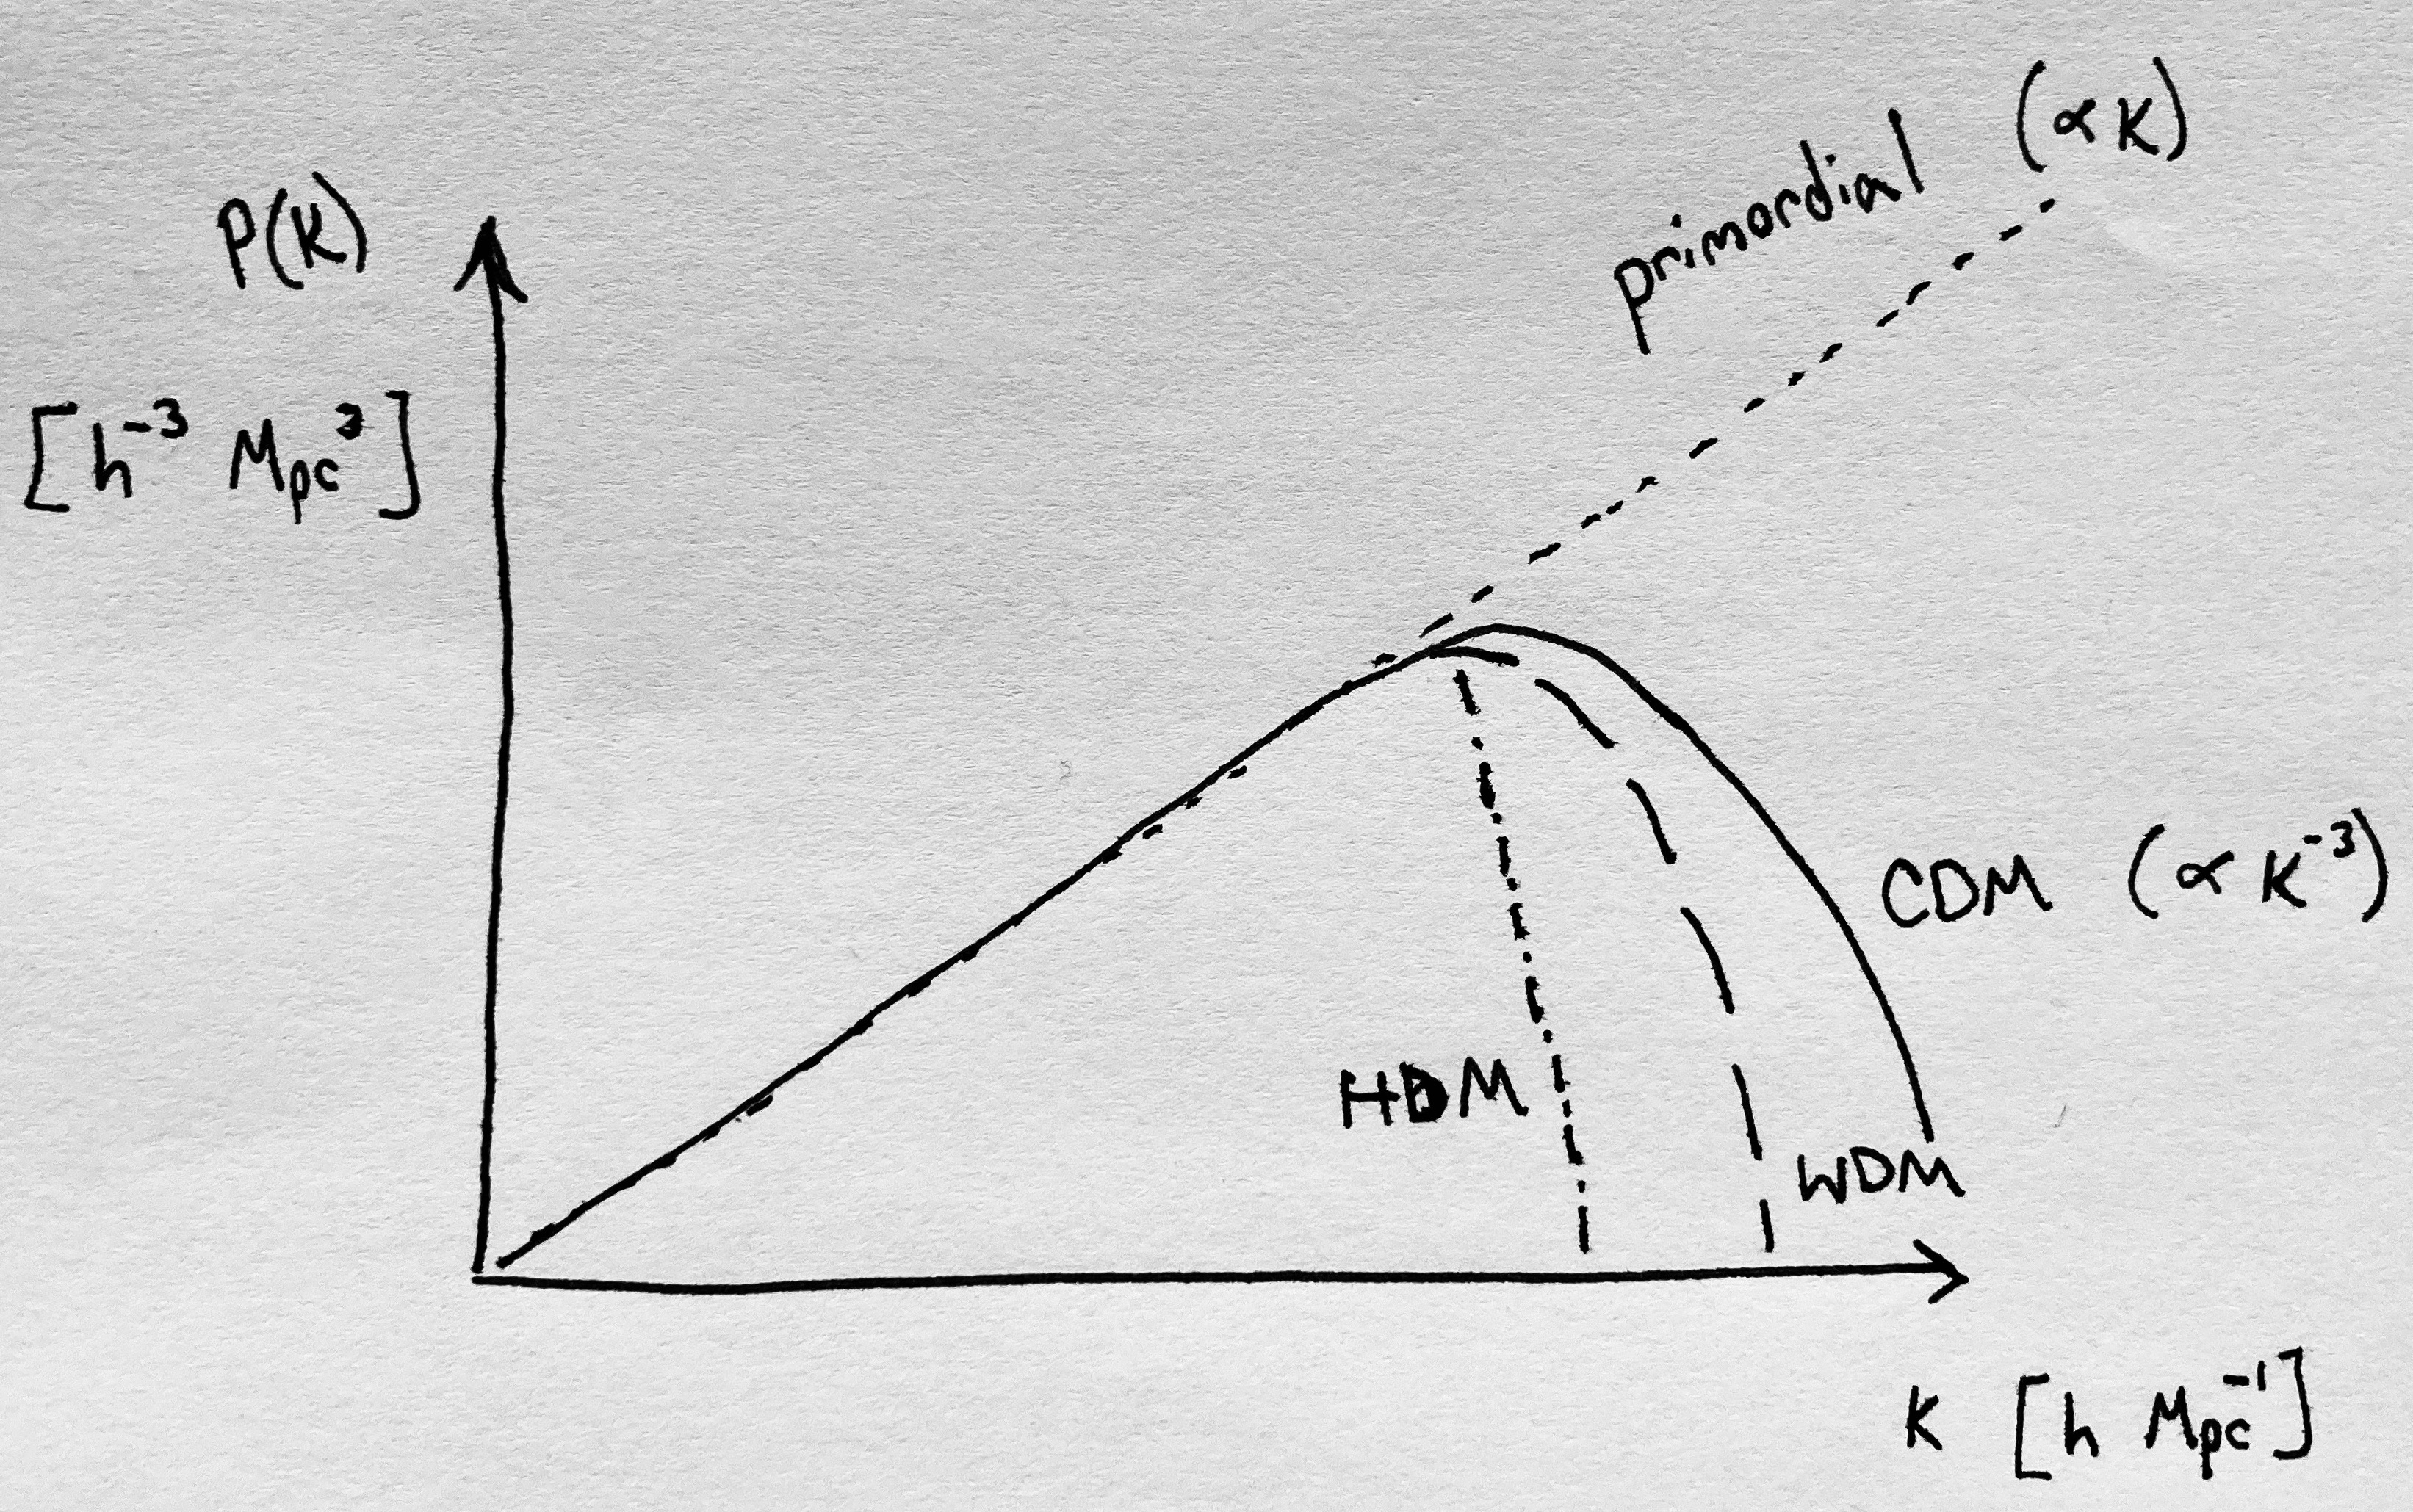 P(K)
[h⁻³ Mpc³]
primordial (∝ K)
CDM (∝ K⁻³)
HDM
WDM
K [h Mpc⁻¹]